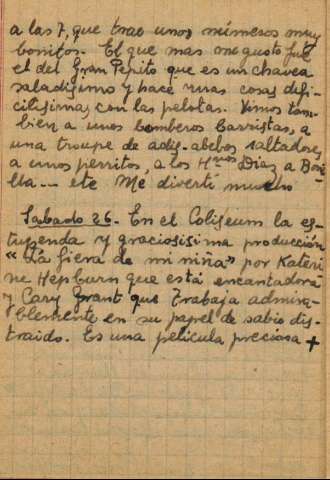 a las 7, que trae unos números muy
bonitos. El que mas me gusto fué
el del Gran Pepito que es un chavea
saladisimo y hace unas cosas difi-
cilisimas con las pelotas. Vimos tam-
bien a unos bomberos barristas, a
una troupe de adis-abebos saltadores,
a unos perritos, a los Hnos Diaz, a Boni
lla... ete Me divertí mucho
Sabado 26. - En el Coliseum la es-
tupenda y graciosisima producción
"La fiera de mi niña" por Kateri
ne Hepburn que está encantadora
y Cary Grant que trabaja admira-
blemente en su papel de sabio dis-
traido. Es una pelicula preciosa +